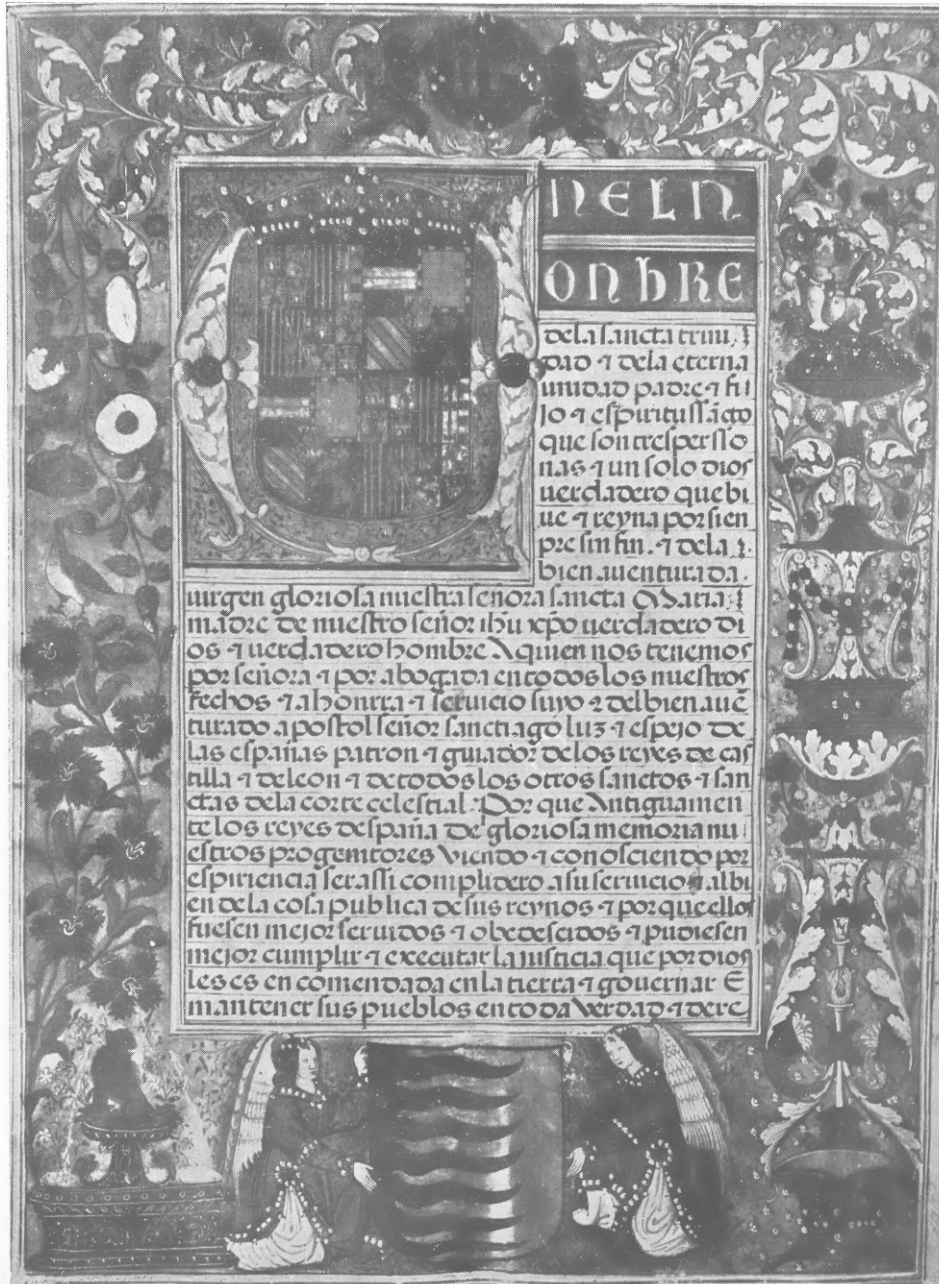 NELN
ONbRE
dela sancta trini
dad ⁊ dela eterna
unidad padre ⁊ fi
jo ⁊ espiritu sãcto
que son tres perso
nas ⁊ un solo dios
uerdadero que bi
ue ⁊ reyna por sien
pre sin fin. ⁊ dela
bien auenturada
uirgen gloriosa nuestra señora sancta Maria
madre de nuestro señor ihu xp̃o uerdadero di
os ⁊ uerdadero hombre A quien nos tenemos
por señora ⁊ por abogada en todos los nuestros
fechos ⁊ a honrra ⁊ seruicio suyo ⁊ del bien auẽ
turado apostol señor sanctiago luz ⁊ espejo de
las españas patron ⁊ guiador delos reyes de cas
tilla ⁊ de leon ⁊ de todos los otros sanctos ⁊ san
ctas dela corte celestial. Por que Antiguamen
te los reyes despaña de gloriosa memoria nu
estros progenitores Viendo ⁊ conosciendo por
espiriencia ser assi complidero a su seruicio ⁊ al bi
en dela cosa publica de sus reynos ⁊ por que ellos
fuesen mejor seruidos ⁊ obedescidos ⁊ pudiesen
mejor cumplir ⁊ executar la justicia que por dios
les es encomendada en la tierra ⁊ gouernar E
mantener sus pueblos en toda Verdad ⁊ dere